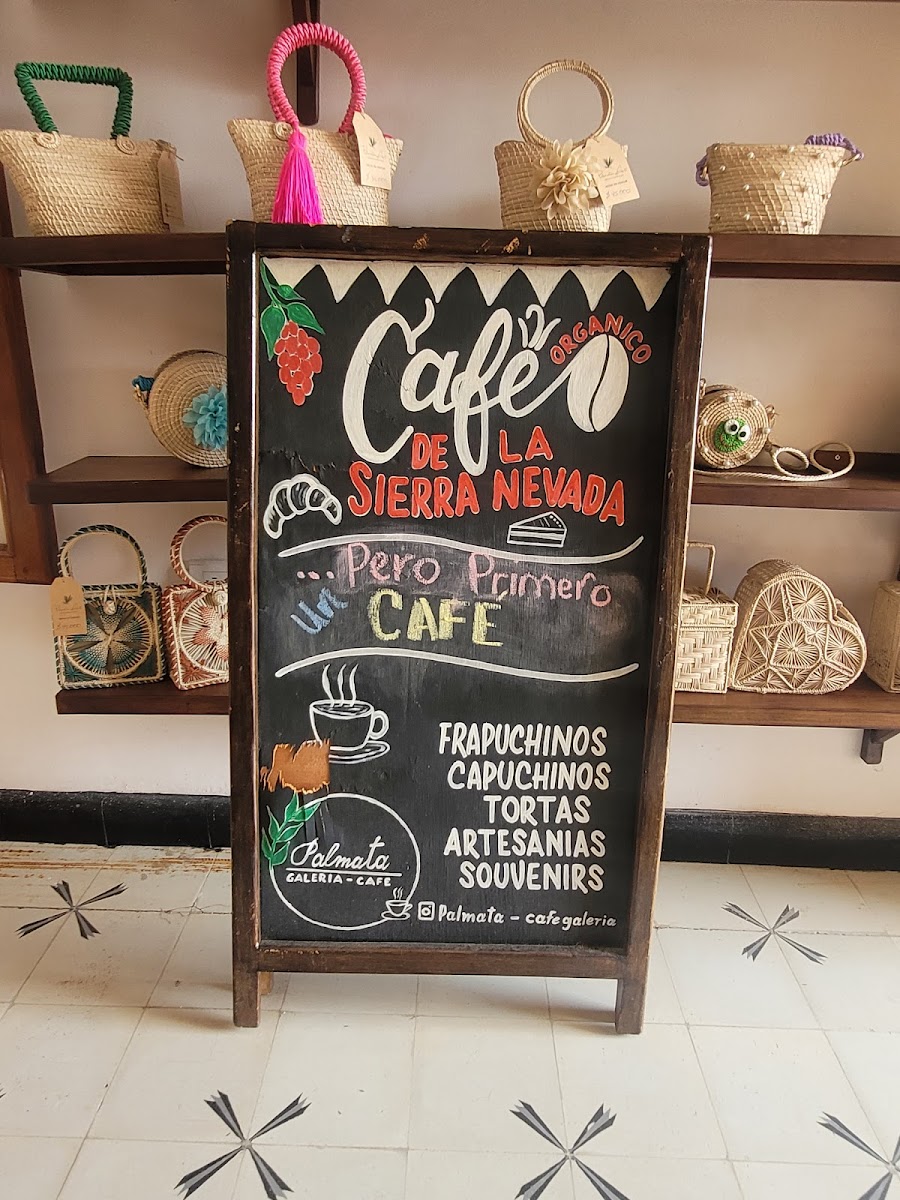 Café
ORGANICO
DE LA
SIERRA NEVADA
...Pero Primero
un
CAFE
FRAPUCHINOS
CAPUCHINOS
TORTAS
ARTESANIAS
SOUVENIRS
Palmata
GALERIA - CAFE
Palmata - cafegaleria